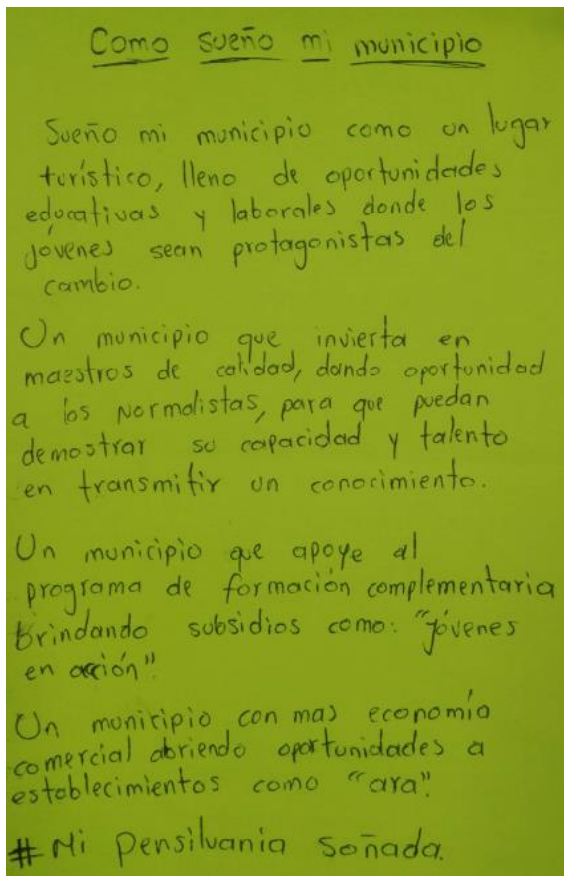 Como sueño mi municipio
Sueño mi municipio como un lugar
turístico, lleno de oportunidades
educativas y laborales donde los
jóvenes sean protagonistas del
cambio.
Un municipio que invierta en
maestros de calidad, dando oportunidad
a los Normalistas, para que puedan
demostrar su capacidad y talento
en transmitir un conocimiento.
Un municipio que apoye al
programa de formación complementaria
brindando subsidios como: "jóvenes
en acción".
Un municipio con mas economía
comercial abriendo oportunidades a
establecimientos como "ara".
# Mi Pensilvania Soñada.